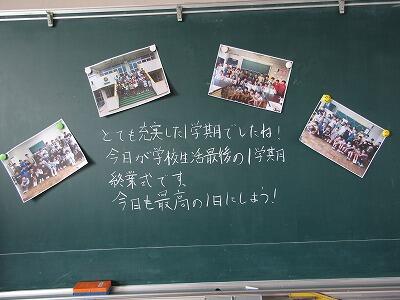 とても充実した1学期でしたね!
今日が学校生活最後の1学期
終業式です。
今日も最高の1日にしよう!